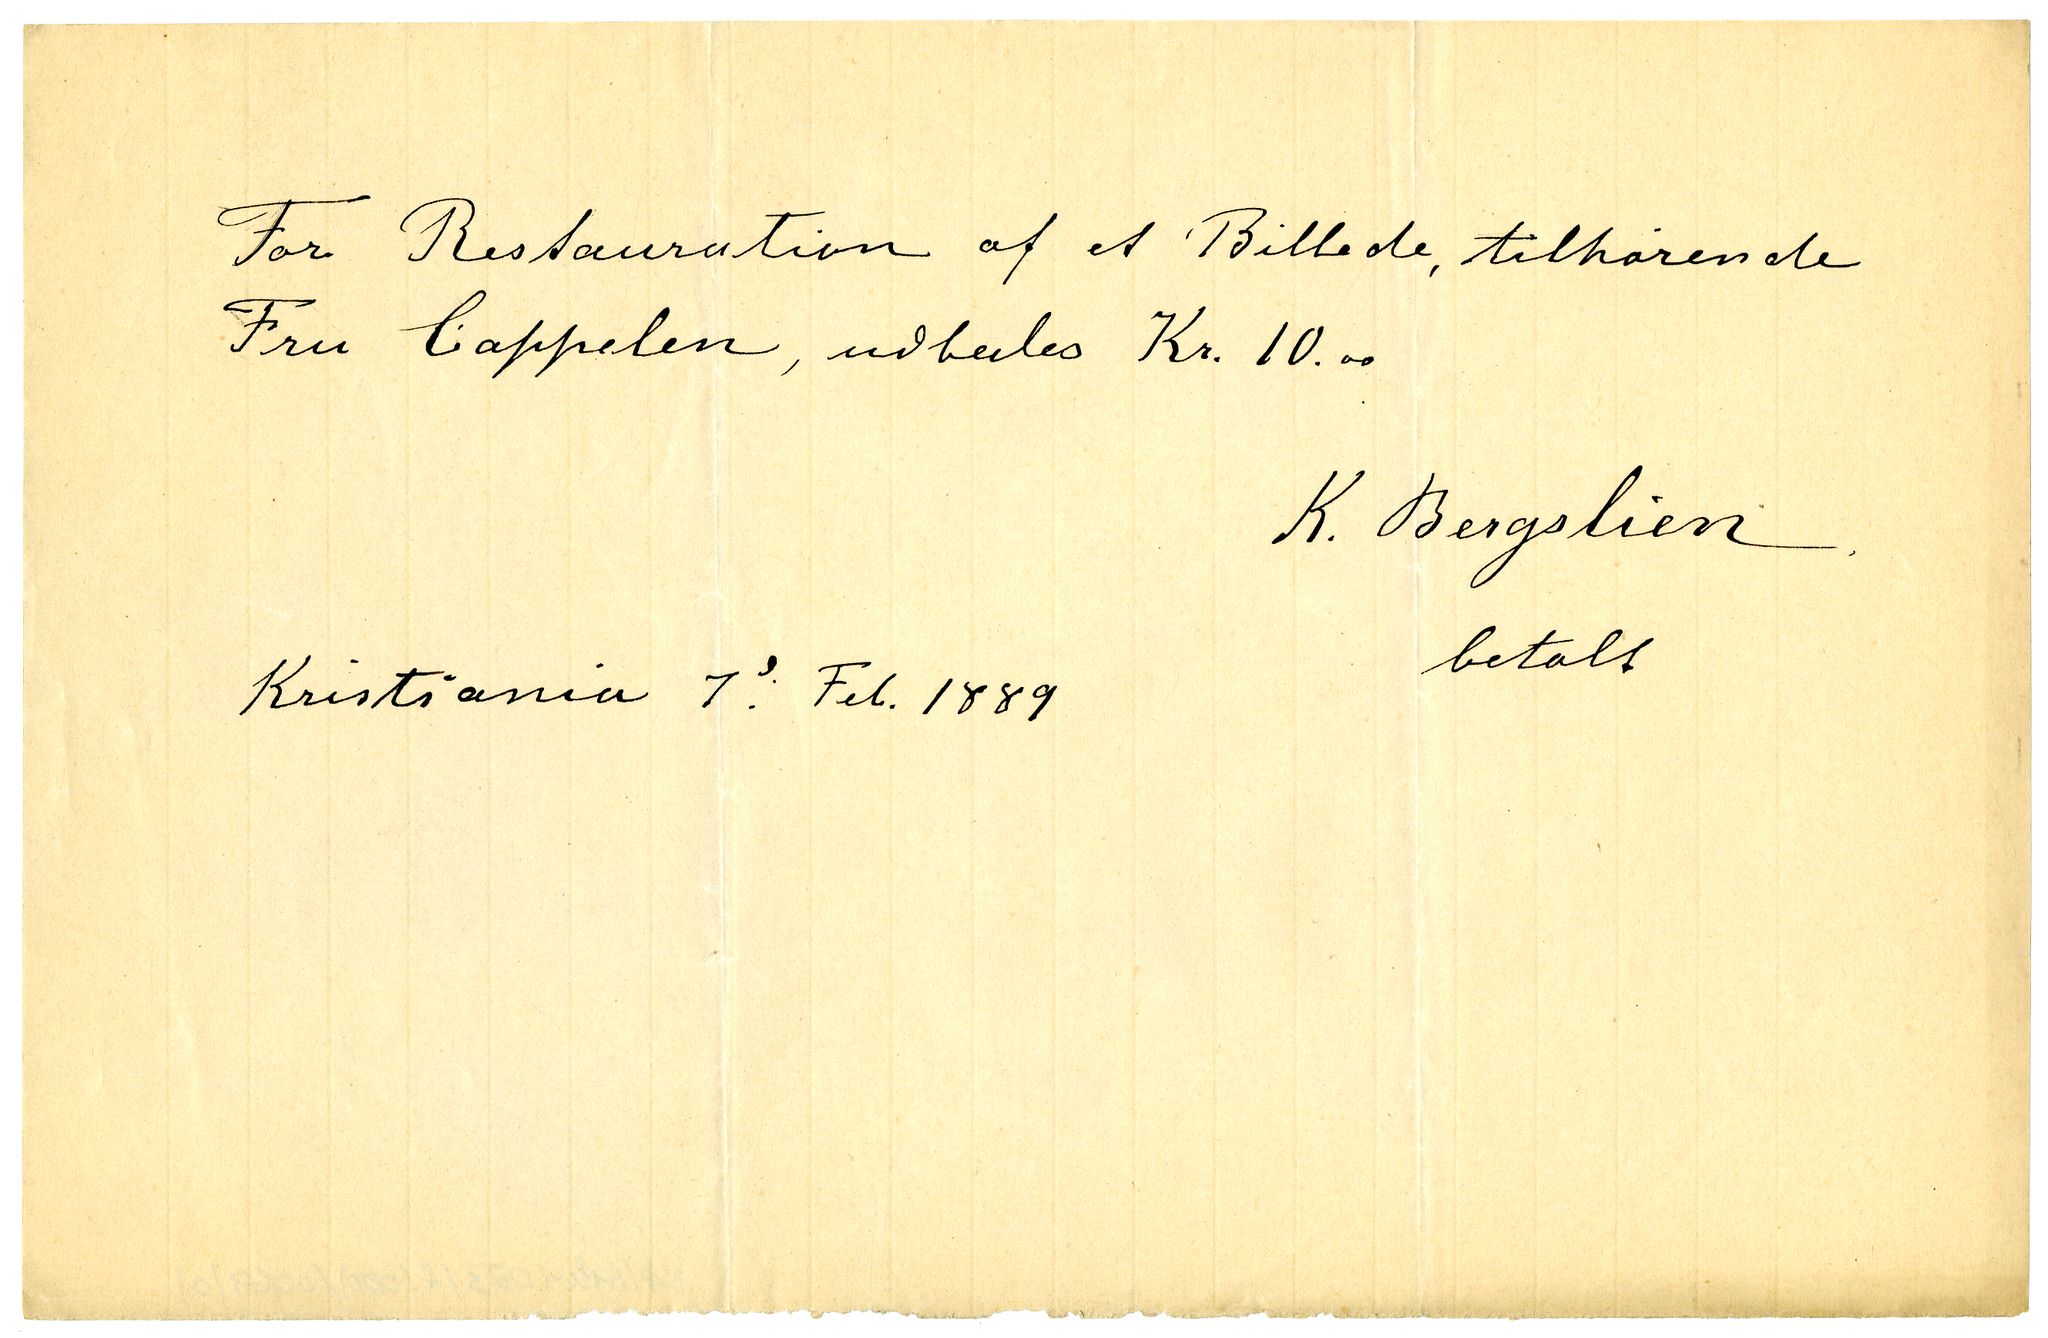 For Restauration af et Billede, tilhørende
Fru Cappelen, udbedes Kr. 10.00
K. Bergslien
betalt
Kristiania 7d. Feb. 1889